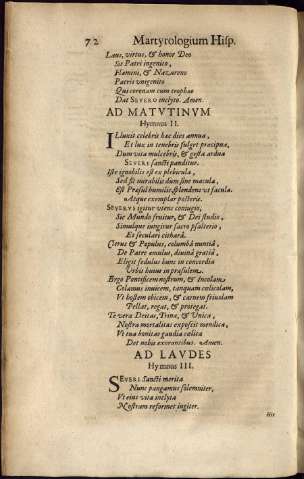 72 Martyrologium Hisp.
Laus, virtus, & honor Deo
Sit Patri ingenito,
Homini, & Nazareno
Patris vnigenito
Qui coronam cum trophæo
Dat SEVERO inclyto. Amen.
AD MATVTINVM
Hymnus II.
ILluxit celebris hæc dies annua,
Et lux in tenebris fulget præcipua,
Dum vita mulcebris, & gesta ardua
SEVERI sancti panditur.
Iste ignobilis est ex plebecula,
Sed fit mirabilis dum sine macula,
Est Præsul humilis, splendens vt facula.
Atque exemplar posteris.
SEVERVS igitur viuens coniugio,
Sic Mundo fruitur, & Dei studio,
Simulque iungitur sacro psalterio,
Et sæculari citharâ.
Clerus & Populus, columbâ nuntiâ,
De Patre enulus, diuinâ gratiâ,
Eligit sedulus hunc in concordia
Vrbis huius in præsulem.
Ergo Pontificem nostrum, & incolam
Colamus inuicem, tanquam cœlicolam,
Vt hostem obicem, & carnem friuolam
Pellat, regat, & protegat.
Te vera Deitas, Trina, & Vnica,
Nostra mortalitas exposcit mendica,
Vt tua bonitas gaudia cœlica
Det nobis exorantibus. Amen.
AD LAVDES
Hymnus III.
SEVERI sancti merita
Nunc pangamus solemniter,
Vt eius vita inclyta
Nostram reformet iugiter.
Hic